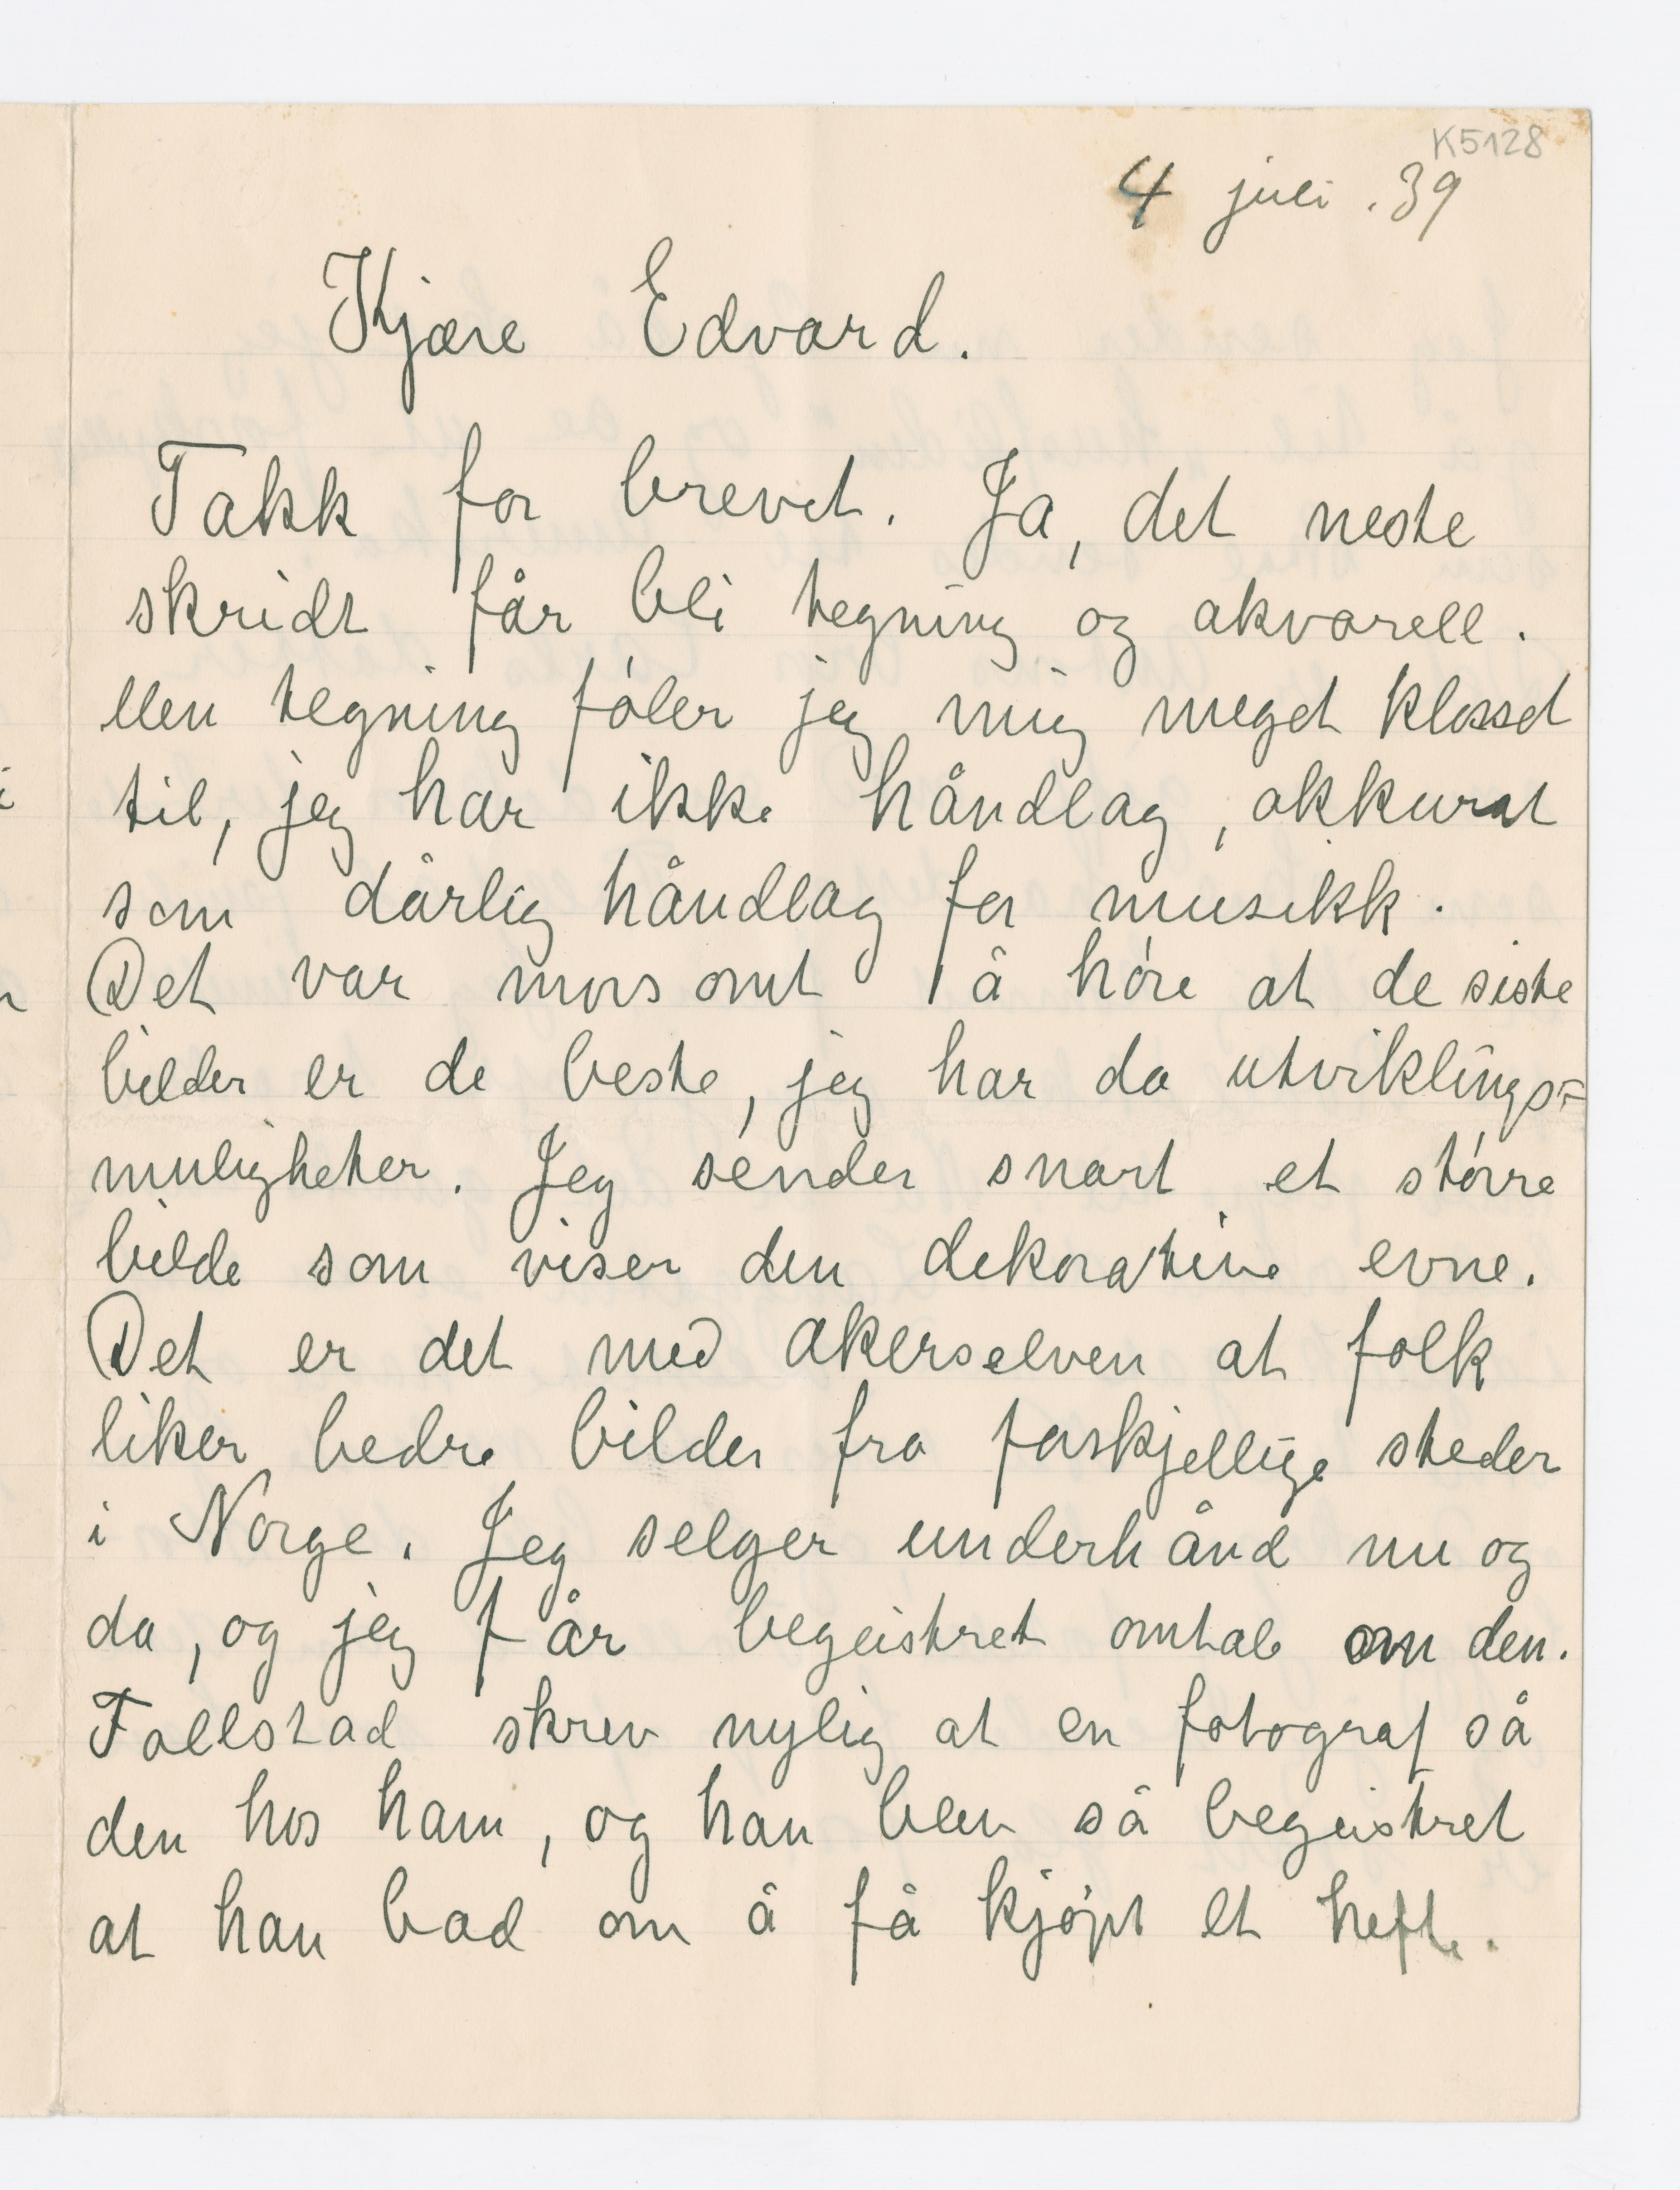 K5128
4 juli .39
Kjære Edvard.
Takk for brevet. Ja, det neste
skridt får bli tegning og akvarell.
Men tegning føler jeg mig meget klosset
til, jeg har ikke håndlag, akkurat
som dårlig håndlag for musikk.
Det var morsomt å høre at de siste
bilder er de beste, jeg har da utviklings=
muligheter. Jeg sender snart et større
bilde som viser den dekorative evne.
Det er det med Akerselven at folk
liker bedre bilder fra forskjellige steder
i Norge. Jeg selger underhånd nu og
da, og jeg får begeistret omtale om den.
Follestad skrev nylig at en fotograf så
den hos ham, og han blev så begeistret
at han bad om å få kjøpt et hefte.